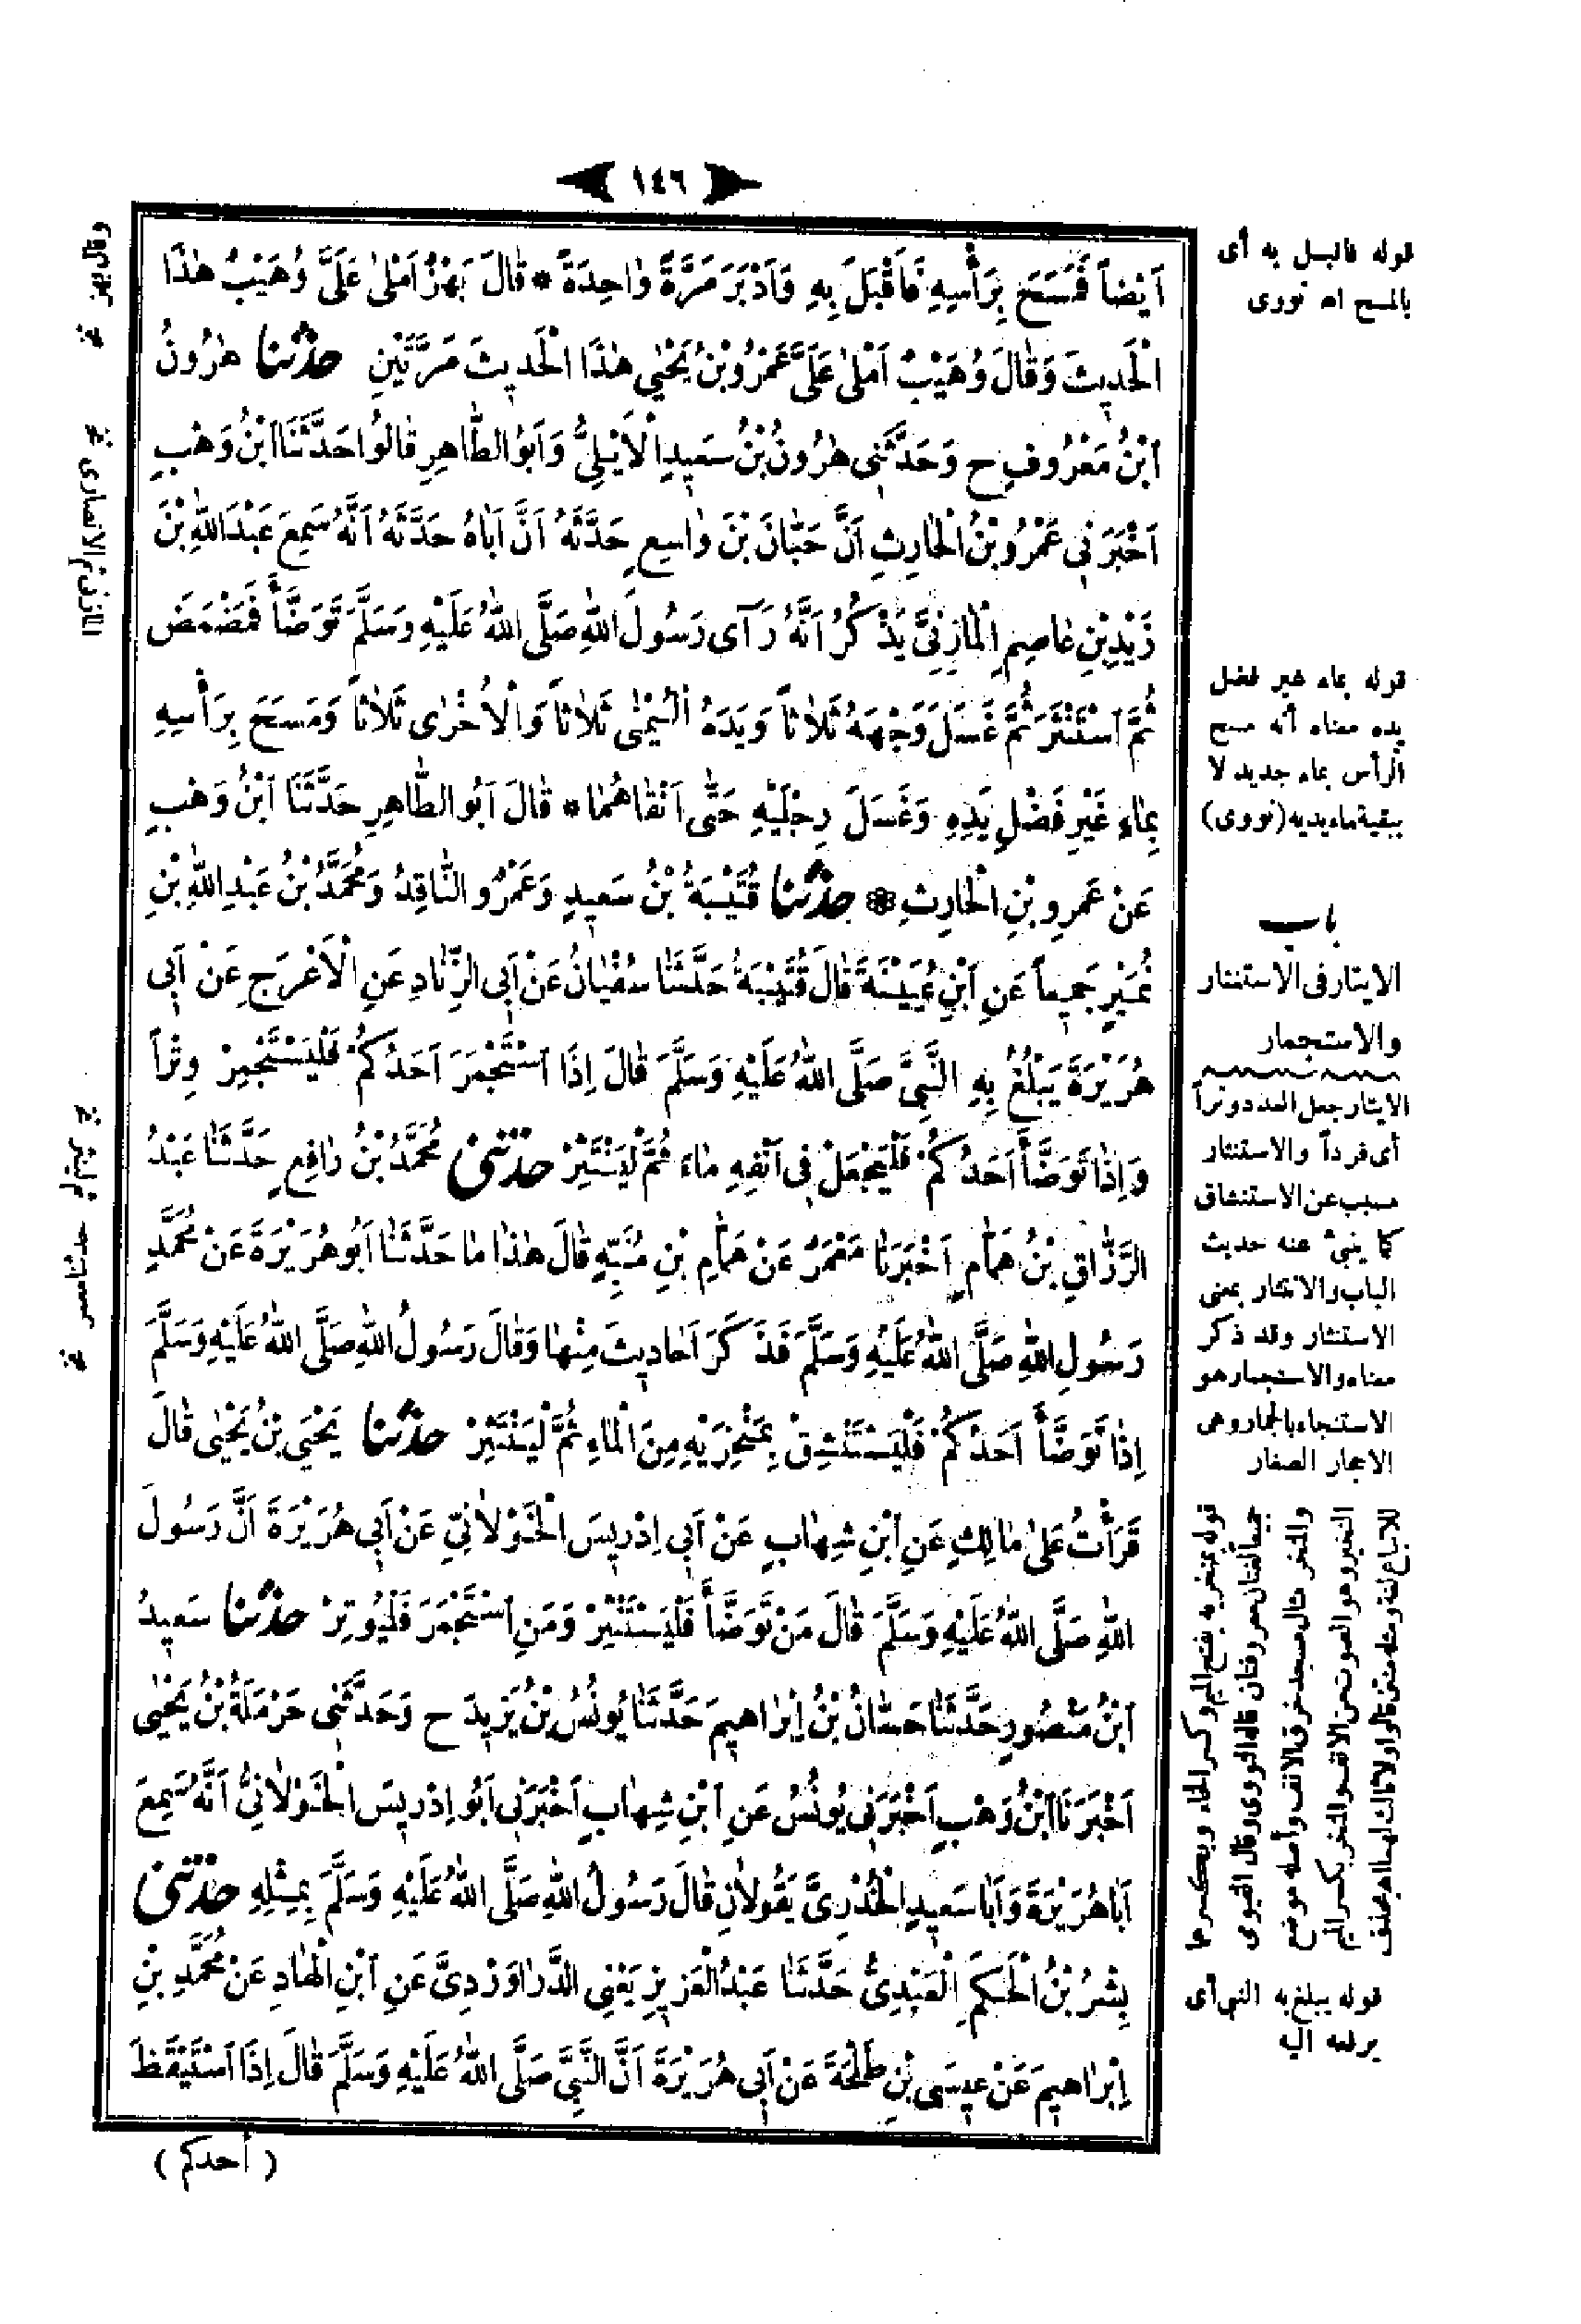 ١٤٦
اَيْضاً فَمَسَحَ بِرَأْسِهِ فَاَقْبَلَ بِهِ وَاَدْبَرَ مَرَّةً وَاحِدَةً * قَالَ بَهْزٌ اَمْلىٰ عَلَىَّ وُهَيْبٌ هٰذَا
الْحَدِيثَ وَقَالَ وُهَيْبٌ اَمْلىٰ عَلَىَّ عَمْرُوبْنُ يَحْيٰى هٰذَا الْحَدِيثَ مَرَّتَيْنِ حدثنا هٰرُونُ
اَبْنُ مَعْرُوفٍ ح وَحَدَّثَنِى هٰرُونُ بْنُ سَعِيدٍ الْاَيْلِىُّ وَاَبُو الطَّاهِرِ قَالُوا حَدَّثَنَا اَبْنُ وَهْبٍ
اَخْبَرَنِى عَمْرُو بْنُ الْحَارِثِ اَنَّ حَبَّانَ بْنَ وَاسِعٍ حَدَّثَهُ اَنَّ اَبَاهُ حَدَّثَهُ اَنَّهُ سَمِعَ عَبْدَ اللّٰهِ بْنَ
زَيْدِ بْنِ عَاصِمٍ الْمَازِنِىَّ يَذْكُرُ اَنَّهُ رَآى رَسُولَ اللّٰهِ صَلَّى اللّٰهُ عَلَيْهِ وَسَلَّمَ تَوَضَّأَ فَمَضْمَضَ
ثُمَّ اَسْتَنْثَرَ ثُمَّ غَسَلَ وَجْهَهُ ثَلَاثاً وَيَدَهُ الْيُمْنٰى ثَلَاثاً وَالْاُخْرٰى ثَلَاثاً وَمَسَحَ بِرَأْسِهِ
بِمَاءٍ غَيْرِ فَضْلِ يَدِهِ وَغَسَلَ رِجْلَيْهِ حَتّٰى اَنْقَاهُمَا * قَالَ اَبُو الطَّاهِرِ حَدَّثَنَا اَبْنُ وَهْبٍ
عَنْ عَمْرِو بْنِ الْحَارِثِ * حدثنا قُتَيْبَةُ بْنُ سَعِيدٍ وَعَمْرٌو النَّاقِدُ وَمُحَمَّدُ بْنُ عَبْدِ اللّٰهِ بْنِ
نُمَيْرٍ جَمِيعاً عَنِ اَبْنِ عُيَيْنَةَ قَالَ قُتَيْبَةُ حَدَّثَنَا سُفْيَانُ عَنْ اَبِى الزِّنَادِ عَنِ الْاَعْرَجِ عَنْ اَبِى
هُرَيْرَةَ يَبْلُغُ بِهِ النَّبِىَّ صَلَّى اللّٰهُ عَلَيْهِ وَسَلَّمَ قَالَ اِذَا اَسْتَجْمَرَ اَحَدُكُمْ فَلْيَسْتَجْمِرْ وِتْراً
وَاِذَا تَوَضَّأَ اَحَدُكُمْ فَلْيَجْعَلْ فِى اَنْفِهِ مَاءً ثُمَّ لْيَنْتَثِرْ حدثنى مُحَمَّدُ بْنُ رَافِعٍ حَدَّثَنَا عَبْدُ
الرَّزَّاقِ بْنُ هَمَّامٍ اَخْبَرَنَا مَعْمَرٌ عَنْ هَمَّامِ بْنِ مُنَبِّهٍ قَالَ هٰذَا مَا حَدَّثَنَا اَبُو هُرَيْرَةَ عَنْ مُحَمَّدٍ
رَسُولِ اللّٰهِ صَلَّى اللّٰهُ عَلَيْهِ وَسَلَّمَ فَذَكَرَ اَحَادِيثَ مِنْهَا وَقَالَ رَسُولُ اللّٰهِ صَلَّى اللّٰهُ عَلَيْهِ وَسَلَّمَ
اِذَا تَوَضَّأَ اَحَدُكُمْ فَلْيَسْتَنْشِقْ بِمَنْخِرَيْهِ مِنَ الْمَاءِ ثُمَّ لْيَنْتَثِرْ حدثنا يَحْيَى بْنُ يَحْيٰى قَالَ
قَرَأْتُ عَلىٰ مَالِكٍ عَنِ اَبْنِ شِهَابٍ عَنْ اَبِى اِدْرِيسَ الْخَوْلَانِيِّ عَنْ اَبِى هُرَيْرَةَ اَنَّ رَسُولَ
اللّٰهِ صَلَّى اللّٰهُ عَلَيْهِ وَسَلَّمَ قَالَ مَنْ تَوَضَّأَ فَلْيَسْتَنْثِرْ وَمَنِ اَسْتَجْمَرَ فَلْيُوتِرْ حدثنا سَعِيدُ
اَبْنُ مَنْصُورٍ حَدَّثَنَا حَسَّانُ بْنُ اِبْرَاهِيمَ حَدَّثَنَا يُونُسُ بْنُ يَزِيدَ ح وَحَدَّثَنِى حَرْمَلَةُ بْنُ يَحْيٰى
اَخْبَرَنَا اَبْنُ وَهْبٍ اَخْبَرَنِى يُونُسُ عَنِ اَبْنِ شِهَابٍ اَخْبَرَنِى اَبُو اِدْرِيسَ الْخَوْلَانِىُّ اَنَّهُ سَمِعَ
اَبَا هُرَيْرَةَ وَاَبَا سَعِيدٍ الْخُدْرِىَّ يَقُولَانِ قَالَ رَسُولُ اللّٰهِ صَلَّى اللّٰهُ عَلَيْهِ وَسَلَّمَ بِمِثْلِهِ حدثنى
بِشْرُ بْنُ الْحَكَمِ الْعَبْدِىُّ حَدَّثَنَا عَبْدُ الْعَزِيزِ يَعْنِى الدَّرَاوَرْدِىَّ عَنِ اَبْنِ الْهَادِ عَنْ مُحَمَّدِ بْنِ
اِبْرَاهِيمَ عَنْ عِيسَى بْنِ طَلْحَةَ عَنْ اَبِى هُرَيْرَةَ اَنَّ النَّبِىَّ صَلَّى اللّٰهُ عَلَيْهِ وَسَلَّمَ قَالَ اِذَا اَسْتَيْقَظَ
( أحدكم )
قوله فاقبل به أى
بالمسح اه نووى
قوله بماء غير فضل
يده معناه أنه مسح
الرأس بماء جديد لا
ببقية ماء يديه (نووى)
باب
الايتار فى الاستنثار
والاستجمار
الايتار جعل العدد وتراً
أى فرداً والاستنثار
مسبب عن الاستنشاق
كما ينبئ عنه حديث
الباب والانتثار بمعنى
الاستنثار وقد ذكر
معناه والاستجمار هو
الاستنجاء بالجمار وهى
الاحجار الصغار
قوله بمنخريه بفتح الميم وكسر الخاء وبكسرهما
جميعاً لغتان معروفتان قاله النووى وقال الفيومى
والمنخر مثال مسجد خرق الانف وأصله موضع
النخير وهو الصوت من الانف والمنخر بكسر الميم
للاتباع لغة ومثله منتن قالوا ولا ثالث لهما اه بحذف
قوله يبلغ به النبى أى
يرفعه اليه
وقال بهز نخ
المازنى ثم الانصارى نخ
ثم لينثر نخ
حدثنا معمر نخ